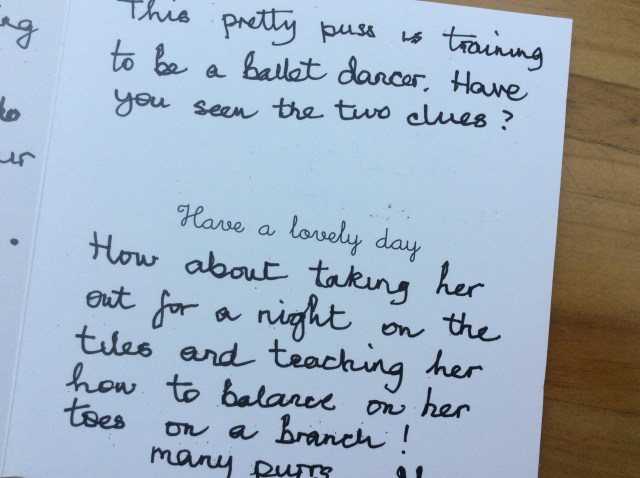 This pretty puss is training
to be a ballet dancer. Have
you seen the two clues?
Have a lovely day
How about taking her
out for a night on the
tiles and teaching her
how to balance on her
toes on a branch!
many purrs